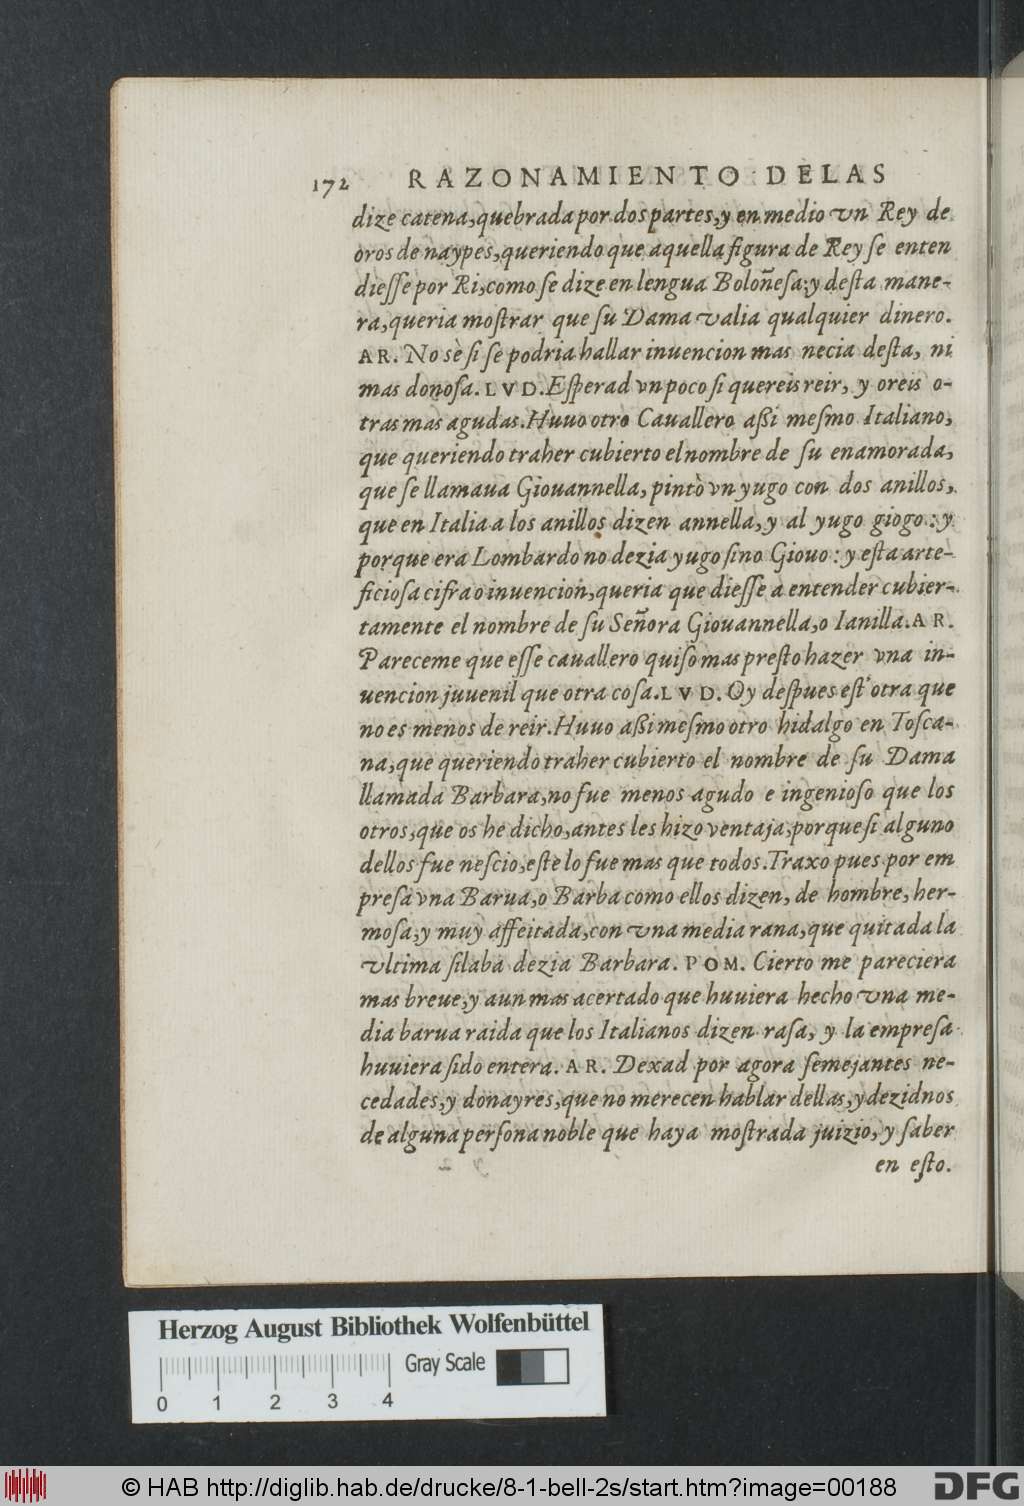 172 RAZONAMIENTO DELAS
dize catena, quebrada por dos partes, y en medio vn Rey de
oros de naypes, queriendo que aquella figura de Rey ſe enten
dieſſe por Ri, como ſe dize en lengua Boloñeſa: y deſta mane-
ra, queria moſtrar que ſu Dama valia qualquier dinero.
AR. No sè ſi ſe podria hallar inuencion mas necia deſta, ni
mas donoſa. LVD. Eſperad vn poco ſi quereis reir, y oreis o-
tras mas agudas. Huuo otro Cauallero aßi meſmo Italiano,
que queriendo traher cubierto el nombre de ſu enamorada,
que ſe llamaua Giouannella, pintò vn yugo con dos anillos,
que en Italia a los anillos dizen annella, y al yugo giogo: y
porque era Lombardo no dezia yugo ſino Giouo: y eſta arte-
ficioſa cifra o inuencion, queria que dieſſe a entender cubier-
tamente el nombre de ſu Señora Giouannella, o Ianilla. AR.
Pareceme que eſſe cauallero quiſo mas preſto hazer vna in-
uencion juuenil que otra coſa. LVD. Oy deſpues eſt'otra que
no es menos de reir. Huuo aßi meſmo otro hidalgo en Toſca-
na, que queriendo traher cubierto el nombre de ſu Dama
llamada Barbara, no fue menos agudo e ingenioſo que los
otros, que os he dicho, antes les hizo ventaja, porque ſi alguno
dellos fue neſcio, eſte lo fue mas que todos. Traxo pues por em
preſa vna Barua, o Barba como ellos dizen, de hombre, her-
moſa, y muy affeitada, con vna media rana, que quitada la
vltima ſilaba dezia Barbara. POM. Cierto me pareciera
mas breue, y aun mas acertado que huuiera hecho vna me-
dia barua raida que los Italianos dizen raſa, y la empreſa
huuiera ſido entera. AR. Dexad por agora ſemejantes ne-
cedades, y donayres, que no merecen hablar dellas, y dezidnos
de alguna perſona noble que haya moſtrada juizio, y ſaber
en eſto.
Herzog August Bibliothek Wolfenbüttel
Gray Scale
0 1 2 3 4
© HAB http://diglib.hab.de/drucke/8-1-bell-2s/start.htm?image=00188
DFG